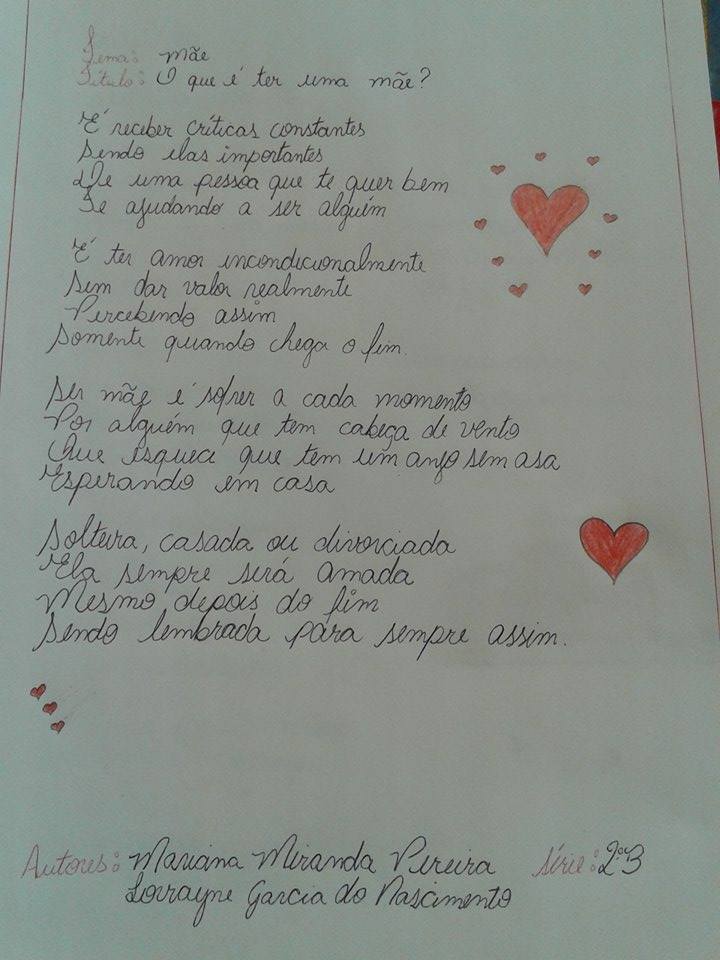 Tema: mãe
Título: O que é ter uma mãe?
É receber críticas constantes
Sendo elas importantes
De uma pessoa que te quer bem
Te ajudando a ser alguém
É ter amor incondicionalmente
Sem dar valor realmente
Percebendo assim
Somente quando chega o fim.
Ser mãe é sofrer a cada momento
Por alguém que tem cabeça de vento
Que esquece que tem um anjo sem asa
Esperando em casa
Solteira, casada ou divorciada
Ela sempre será amada
Mesmo depois do fim
Sendo lembrada para sempre assim.
Autores: Mariana Miranda Pereira série: 2º3
Lorrayne Garcia do Nascimento